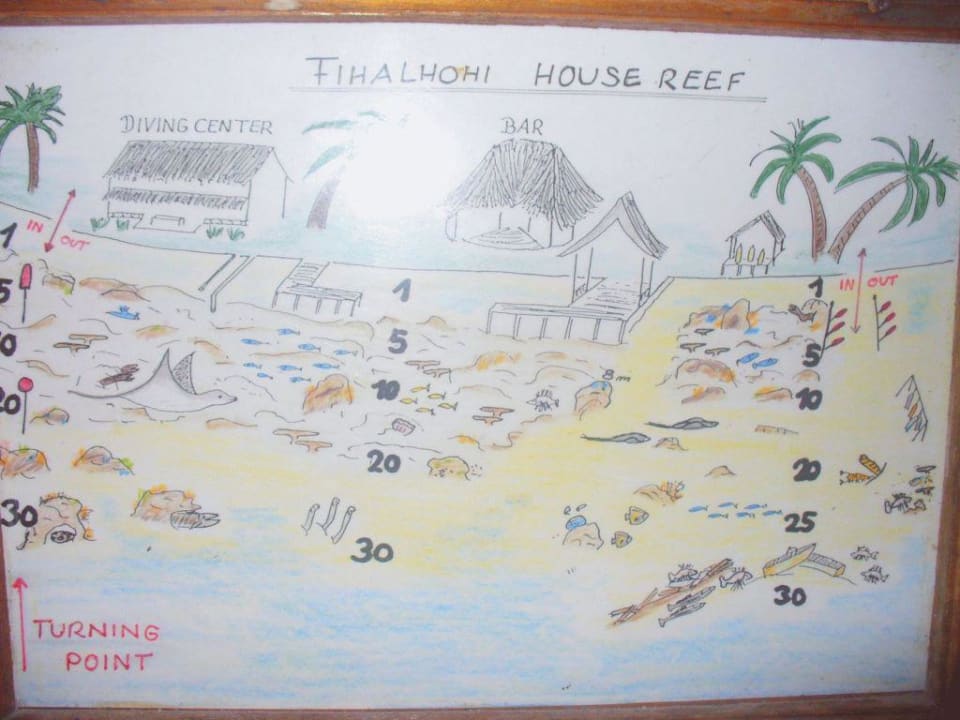 FIHALHOHI HOUSE REEF
DIVING CENTER
BAR
IN
OUT
1
5
20
30
1
5
10
20
30
8m
1
IN
OUT
5
10
20
25
30
TURNING
POINT